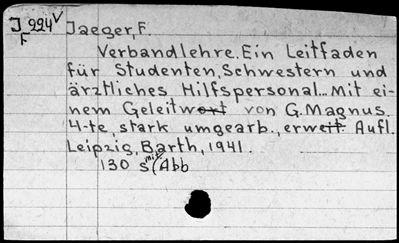 J 224V Jaeger, F.
F
Verbandlehre. Ein Leitfaden
für Studenten, Schwestern und
ärztliches Hilfspersonal... Mit ei-
nem Geleitwort von G. Magnus.
4-te, stark umgearb., erweit. Aufl.
Leipzig, Barth, 1941.
130 S mit Abb